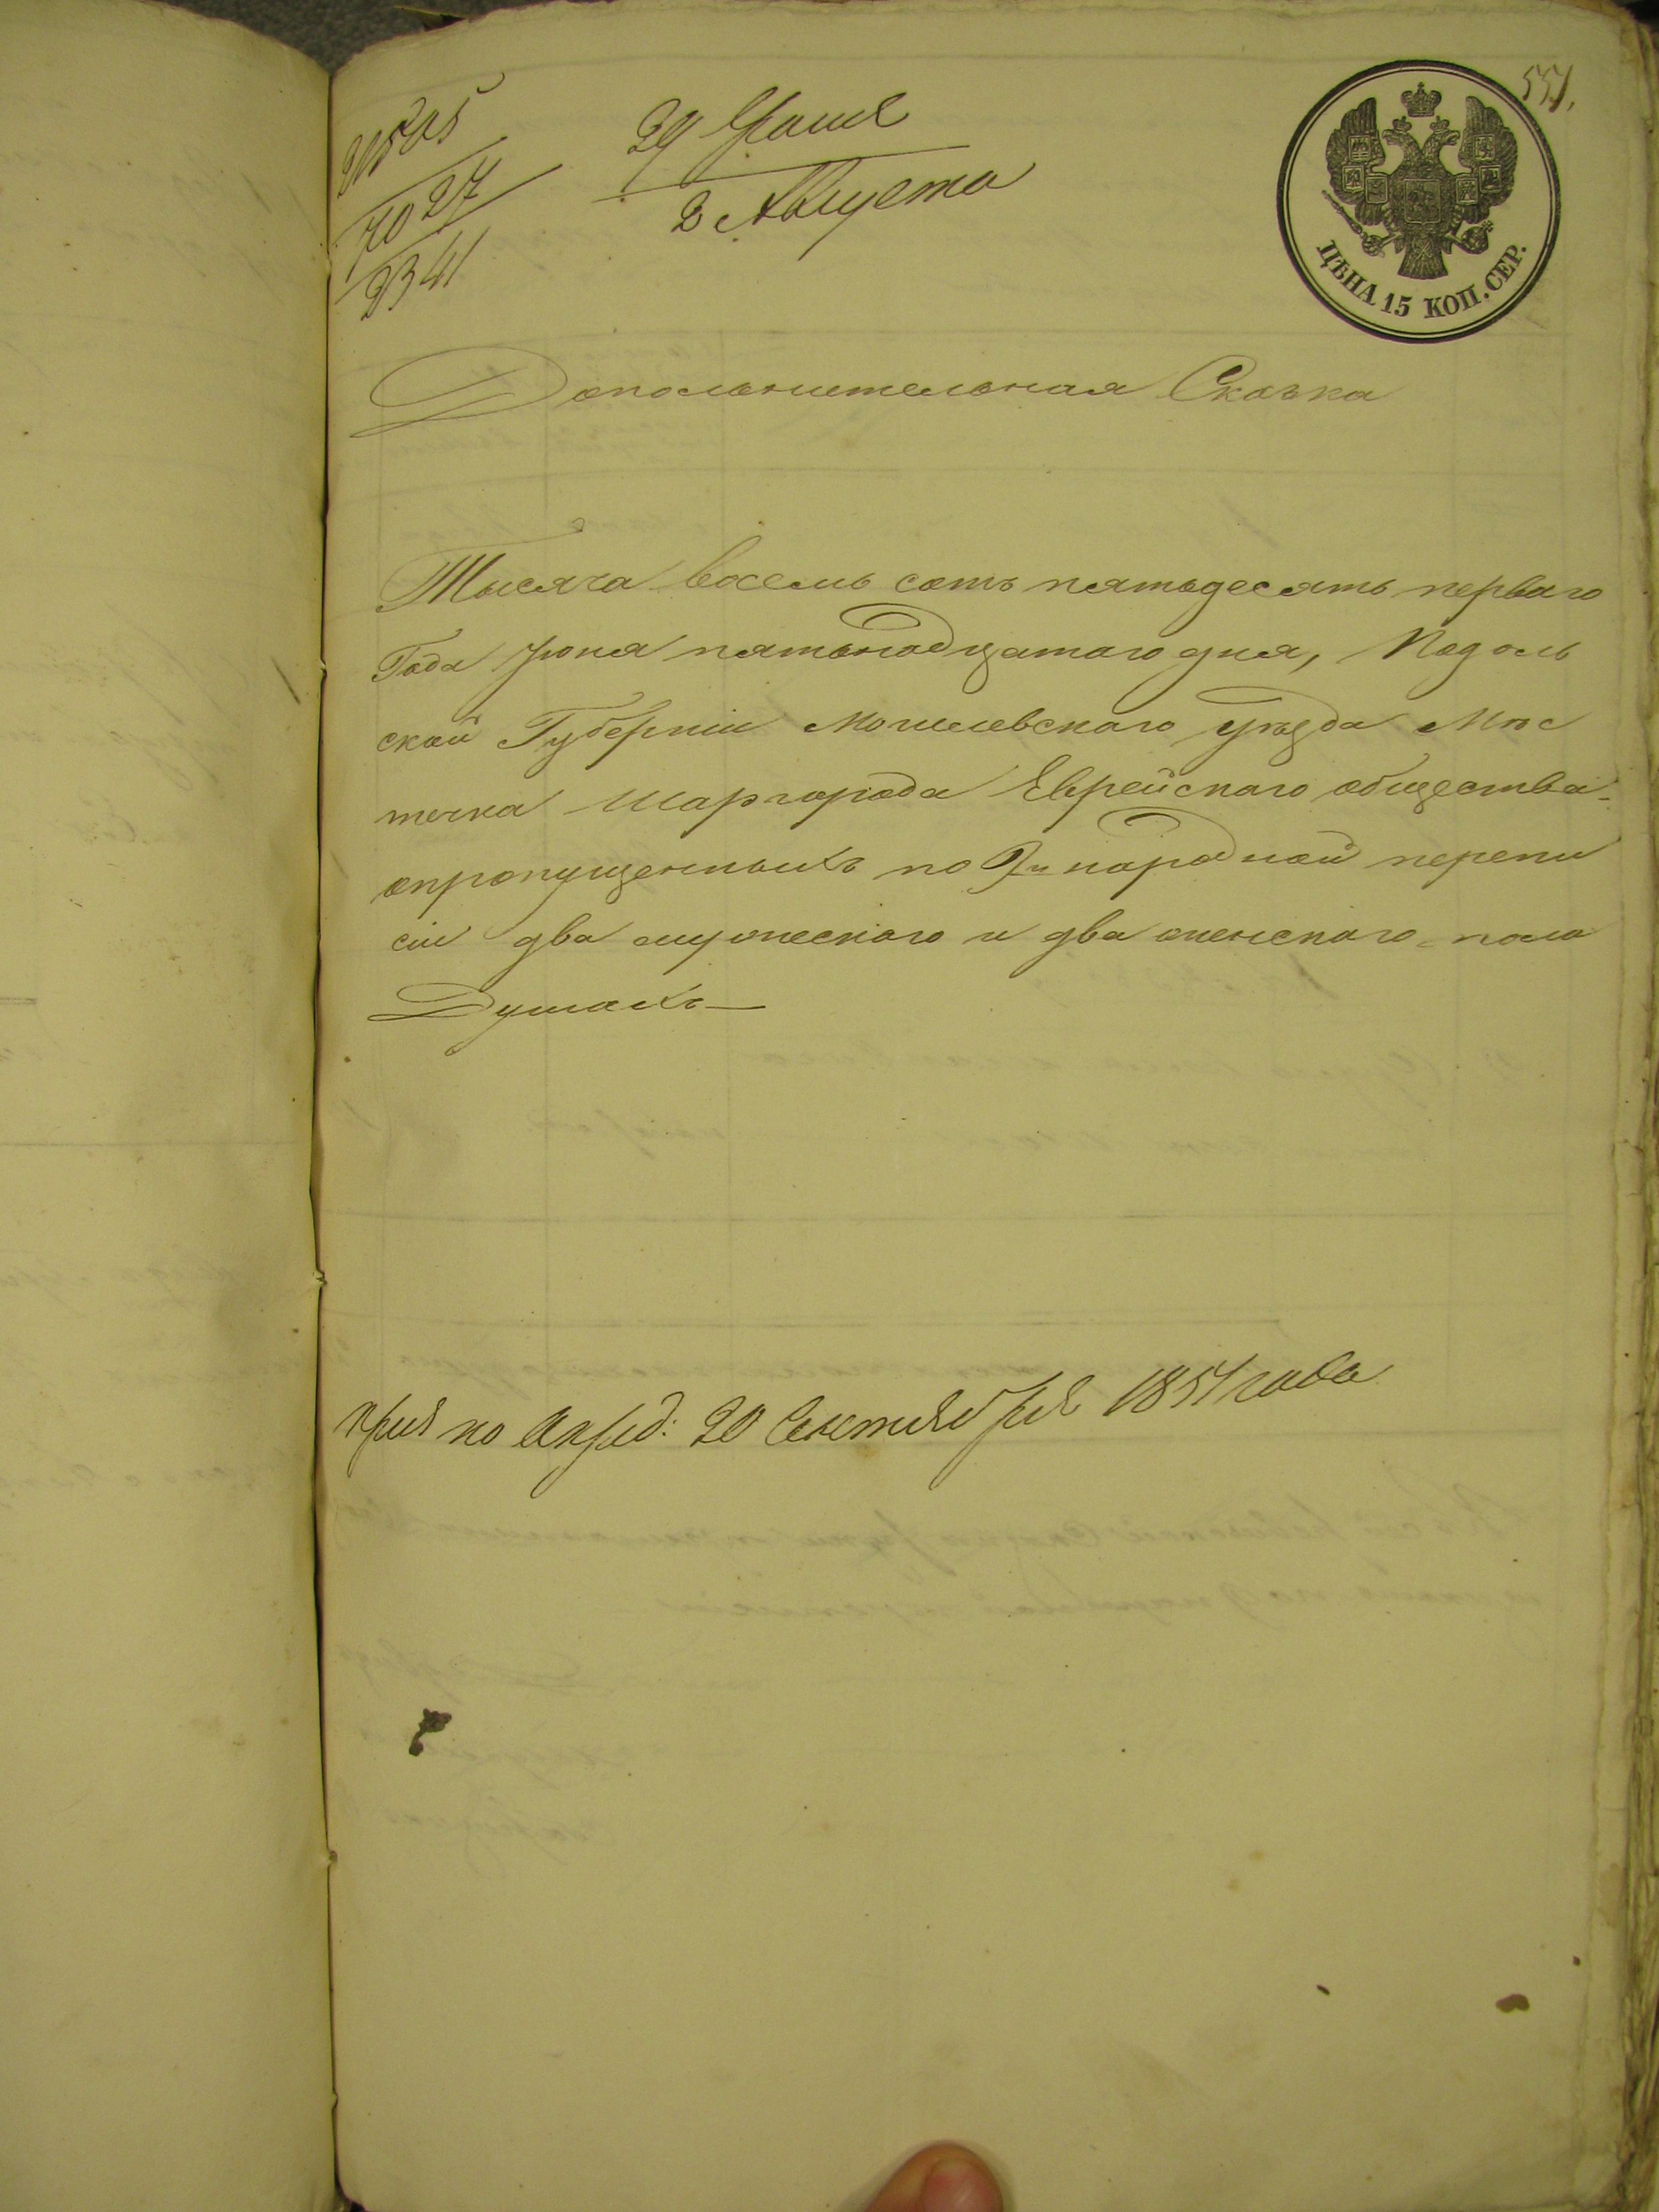 551.
29 Июля
2 Августа
7027
2341
ЦѢНА 15 КОП. СЕР.
Дополнительная Сказка
Тысяча восемь сотъ пятьдесятъ перваго
Года Іюня пятьнадцатаго дня, Подоль
ской Губерніи Могилевскаго уѣзда Мѣс
течка Шаргорода Еврейскаго общества
опропущенныхъ по 9й народной перепи
сіи два мужескаго и два женскаго пола
Душахъ
по 20 Сентября 1851 года